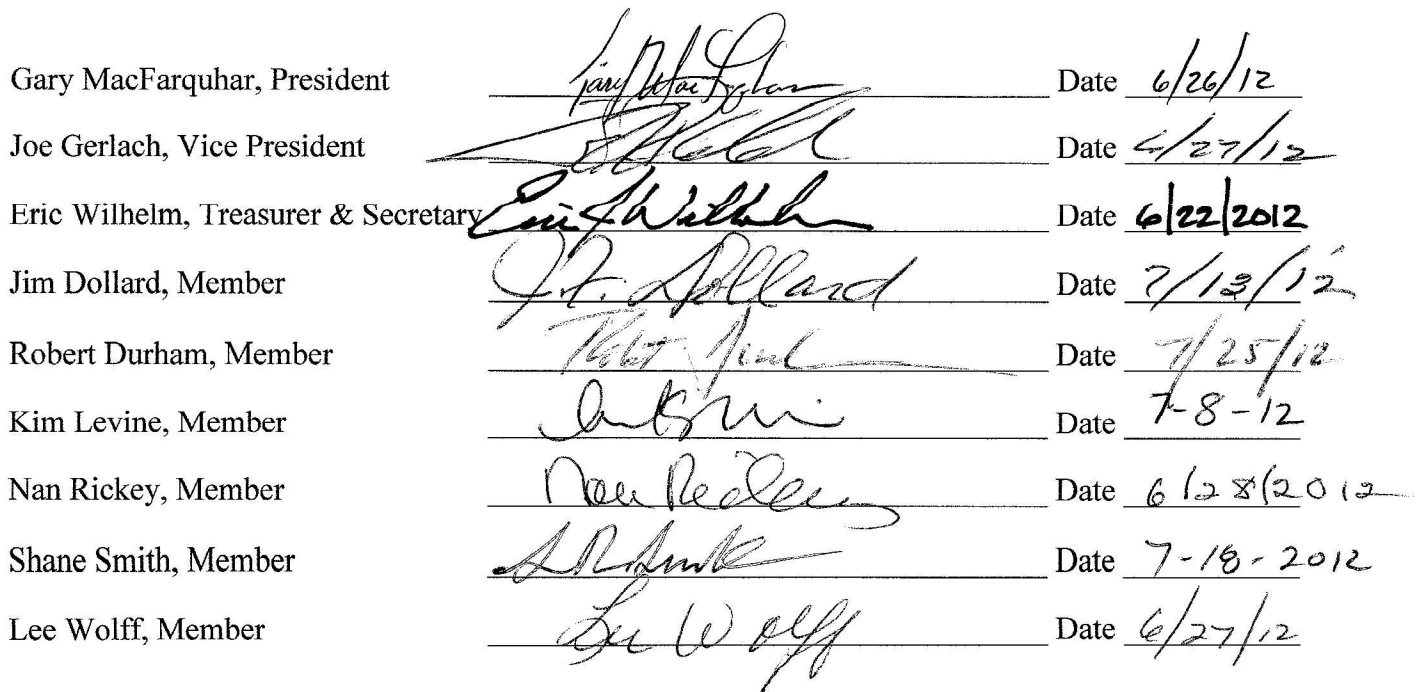 Gary MacFarquhar, President Gary MacFarquhar Date 6/26/12
Joe Gerlach, Vice President Date 6/27/12
Eric Wilhelm, Treasurer & Secretary Eric J Wilhelm Date 6/22/2012
Jim Dollard, Member J.F. Dollard Date 7/13/12
Robert Durham, Member Date 7/25/12
Kim Levine, Member Date 7-8-12
Nan Rickey, Member Nan Rickey Date 6/28/2012
Shane Smith, Member Date 7-18-2012
Lee Wolff, Member Lee Wolff Date 6/27/12